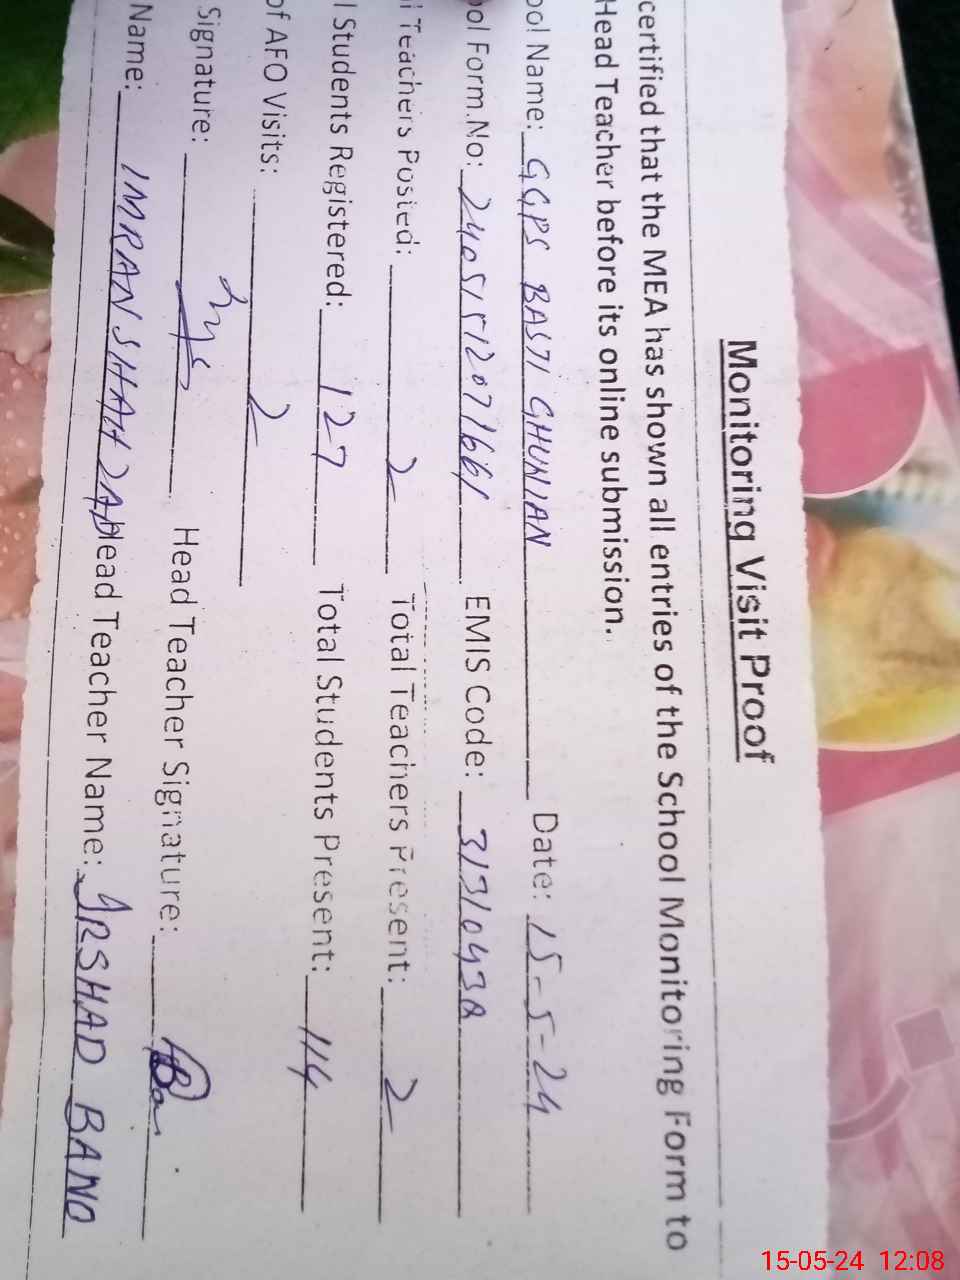 Monitoring Visit Proof
certified that the MEA has shown all entries of the School Monitoring Form to
Head Teacher before its online submission.
ool Name: GGPS BASTI GHUNIAN Date: 15-5-24
ool Form.No: EMIS Code:
l Teachers Posted: 2 Total Teachers Present: 2
l Students Registered: 127 Total Students Present: 114
of AFO Visits: 2
Signature: Head Teacher Signature:
Name: IMRAN SHAHZAD Head Teacher Name: IRSHAD BANO
15-05-24 12:08